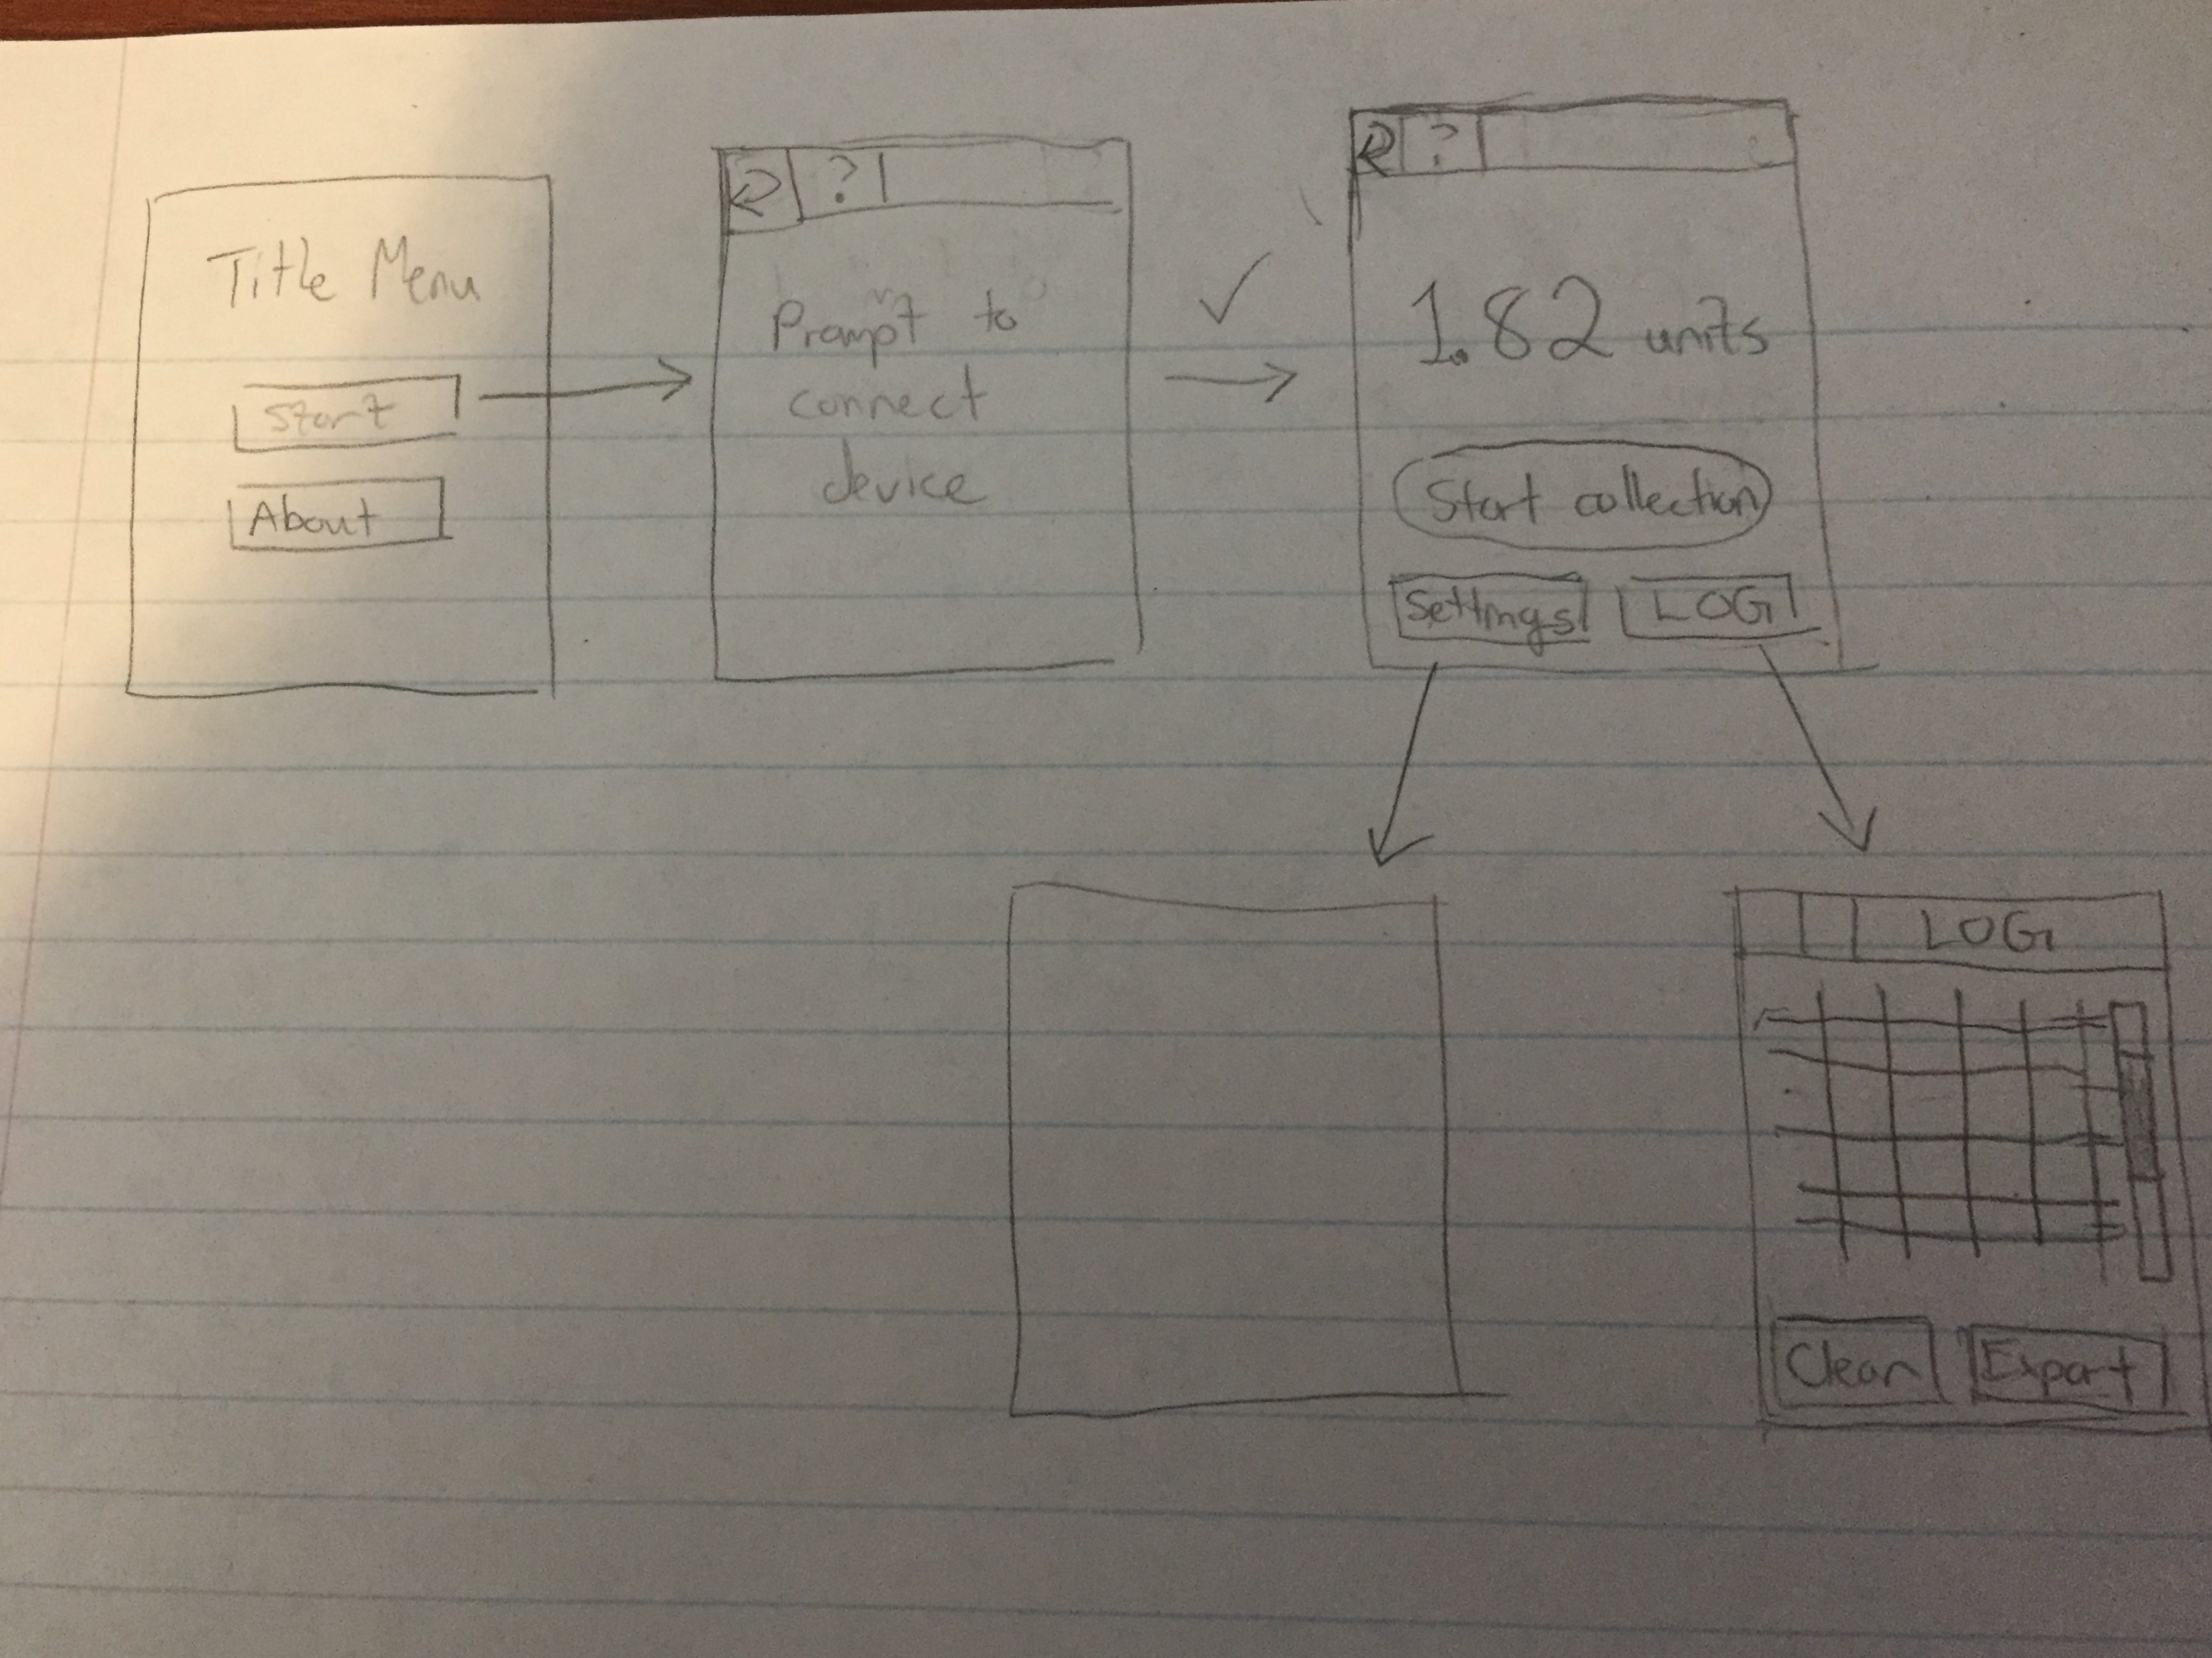 Title Menu
Start
About
?
Prompt to
connect
device
?
1.82 units
Start collection
Settings
LOG
LOG
Clear
Export